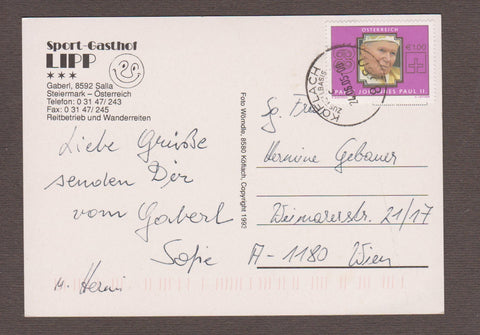 Sport-Gasthof
LIPP
★★★
Gaberl, 8592 Salla
Steiermark – Österreich
Telefon: 0 31 47/ 243
Fax: 0 31 47/ 245
Reitbetrieb und Wanderreiten
Liebe Grüsse
senden Dir
vom Gaberl
Sofie
u. Herwi
Foto Wörndle, 8580 Köflach, Copyright 1992
ÖSTERREICH
€1.00
JOHANNES PAUL II.
KÖFLACH
Sg. Frau
Hermine Gebauer
Weimarerstr. 21/17
A-1180 Wien